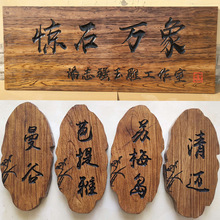 惊石万象
治志骁玉雕工作室
曼谷
芭提雅
苏梅岛
清迈